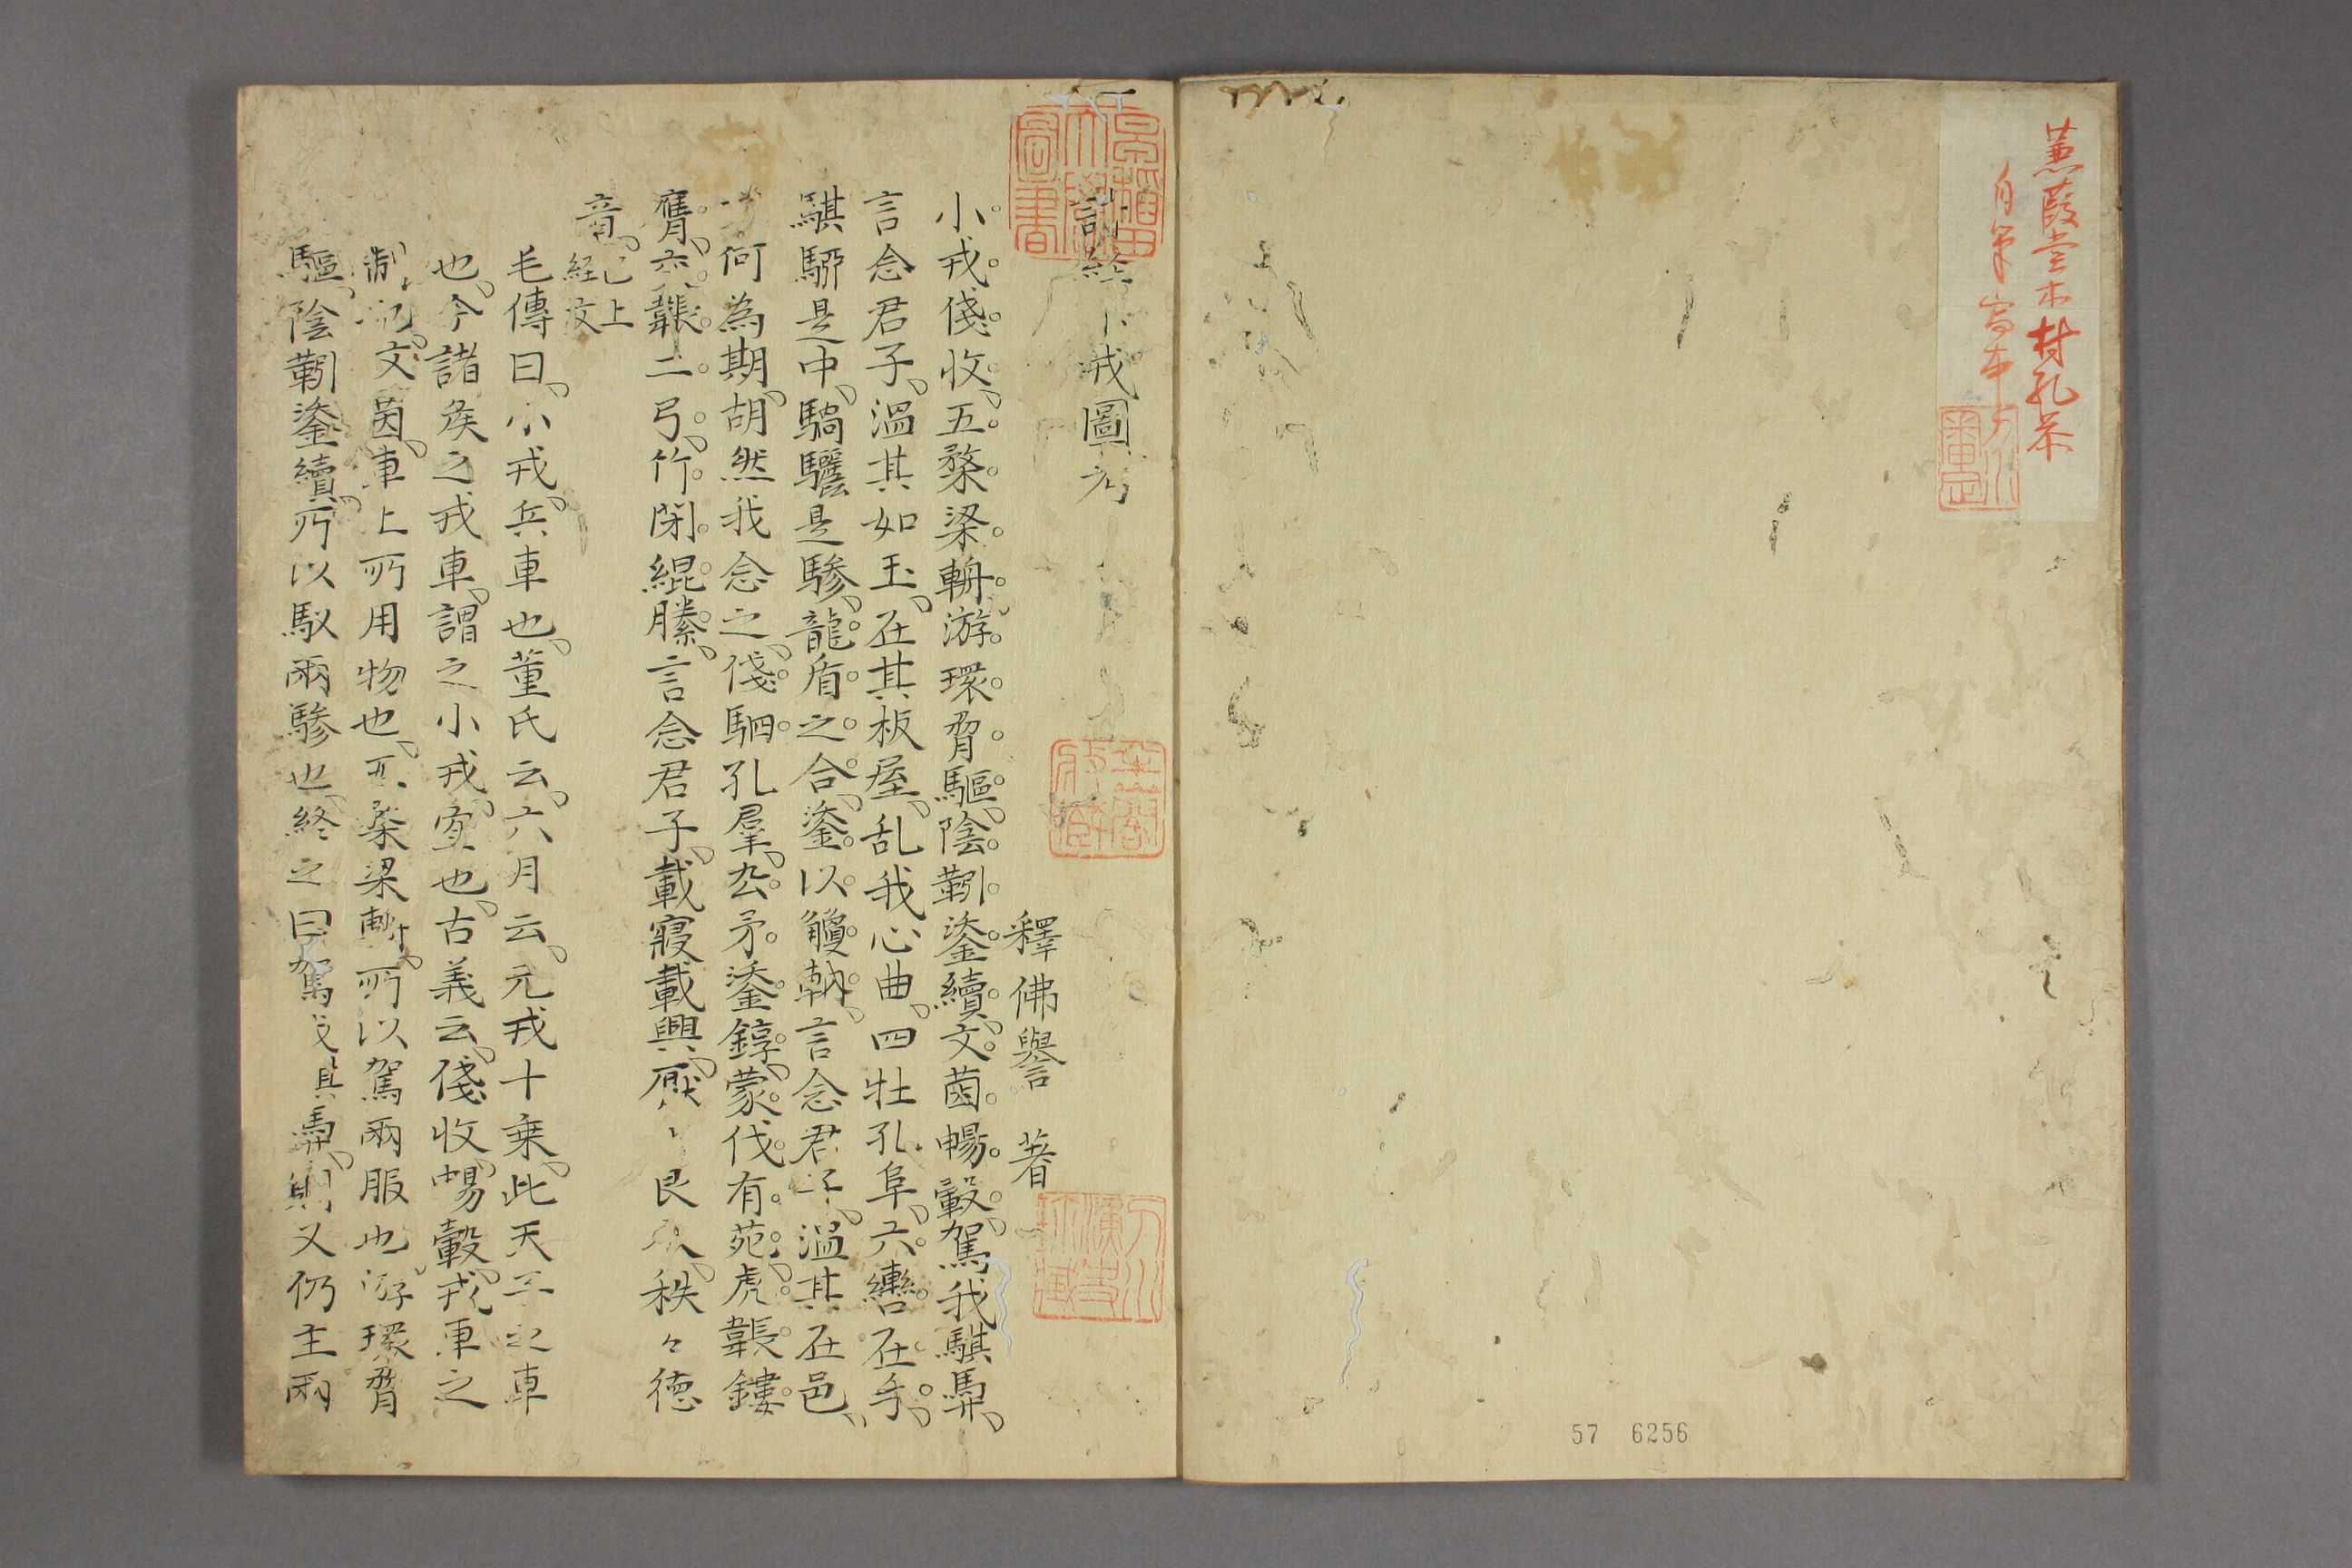 蒹葭堂木村孔恭
自筆寫本
57 6256
早稲田大學圖書
戎圖考
釋佛譽 著
小戎俴收、五楘梁輈、游環脅驅、陰靷鋈續、文茵暢轂、駕我騏馵、
言念君子、溫其如玉、在其板屋、乱我心曲、四牡孔阜、六轡在手、
騏駵是中、騧驪是驂、龍盾之合、鋈以觼軜、言念君子、溫其在邑、
何為期、胡然我念之、俴駟孔羣、厹矛鋈錞、蒙伐有苑、虎韔鏤
膺、交韔二弓、竹閉緄縢、言念君子、載寢載興、厭〻良人、秩々德
音、已上經文
毛傳曰、小戎、兵車也、董氏云、六月云、元戎十乗、此天子之車
也、今諸矦之戎車、謂之小戎、宜也、古義云、俴收、暢轂、戎車之
制、文茵、車上所用物也、五楘梁輈、所以駕兩服也、游環脅
驅、陰靷鋈續、所以馭兩驂也、終之曰駕我其馵、則又仍主兩